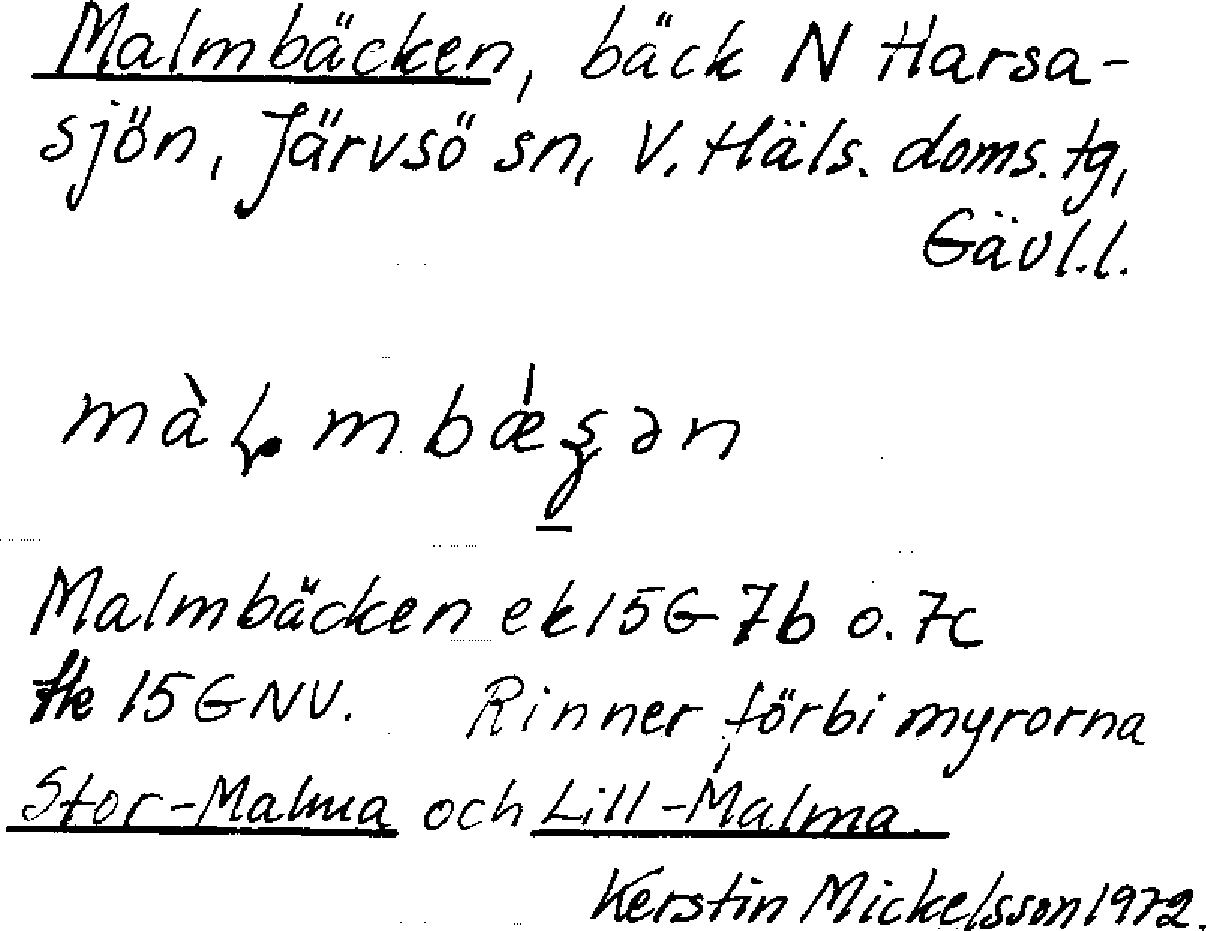 Malmbäcken, bäck N Harsa-
sjön, Järvsö sn, V. Häls. doms. tg,
Gävl.l.
Malmbäcken ek 15G 7b o. 7c
tk 15 G NV. Rinner förbi myrorna
Stor-Malma och Lill-Malma.
Kerstin Mickelsson 1972.